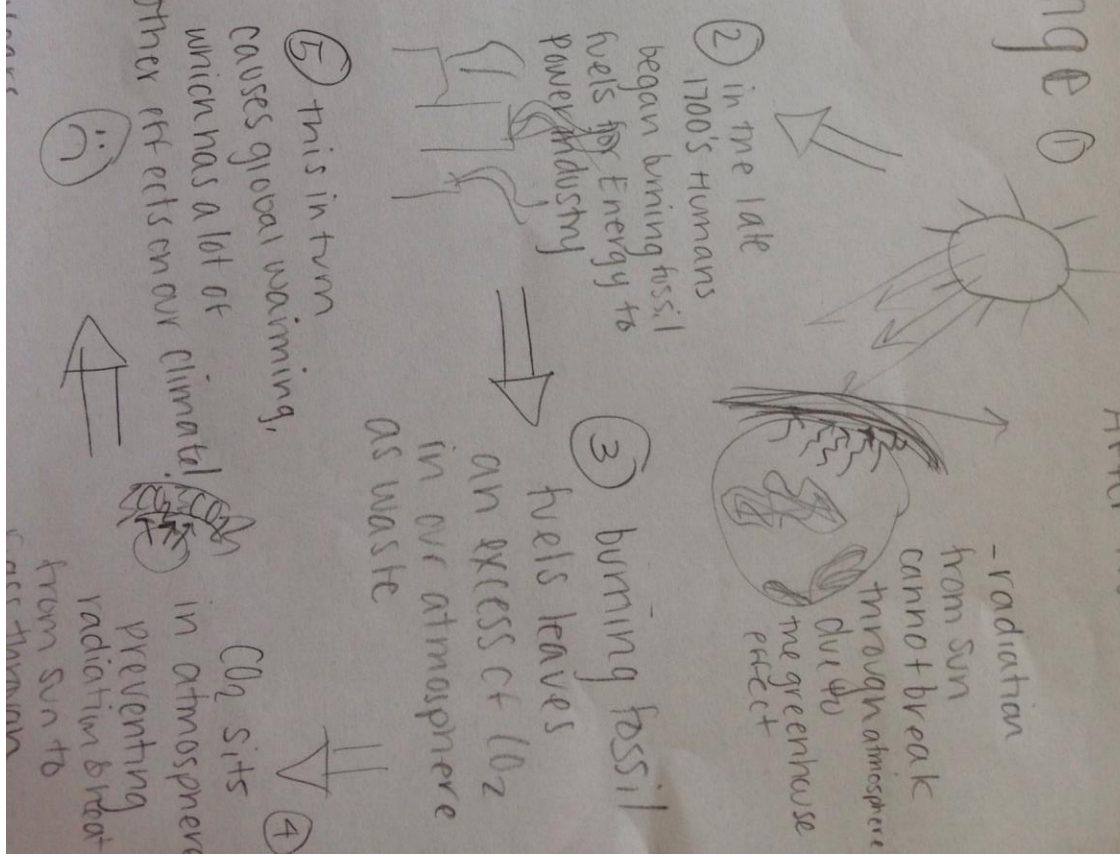 nge ①
- radiation
from sun
cannot break
through atmosphere
due to
the greenhouse
effect
② in the late
1700's Humans
began burning fossil
fuels for Energy to
power industry
③ burning fossil
fuels leaves
an excess of CO₂
in our atmosphere
as waste
④
CO₂ sits
in atmosphere
preventing
radiation & heat
from sun to
CO₂ CO₂
⑤ this in turn
causes global warming,
which has a lot of
other effects on our climate!